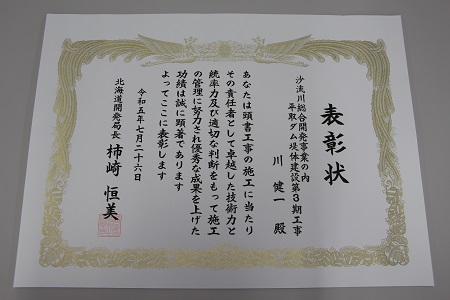 表彰状
沙流川総合開発事業の内
平取ダム堤体建設第3期工事
川 健一 殿
あなたは頭書工事の施工に当たり
その責任者として卓越した技術力と
統率力及び適切な判断をもって施工
の管理に努力され優秀な成果を上げた
功績は誠に顕著であります
よってここに表彰します
令和五年七月二十六日
北海道開発局長 柿崎 恒美